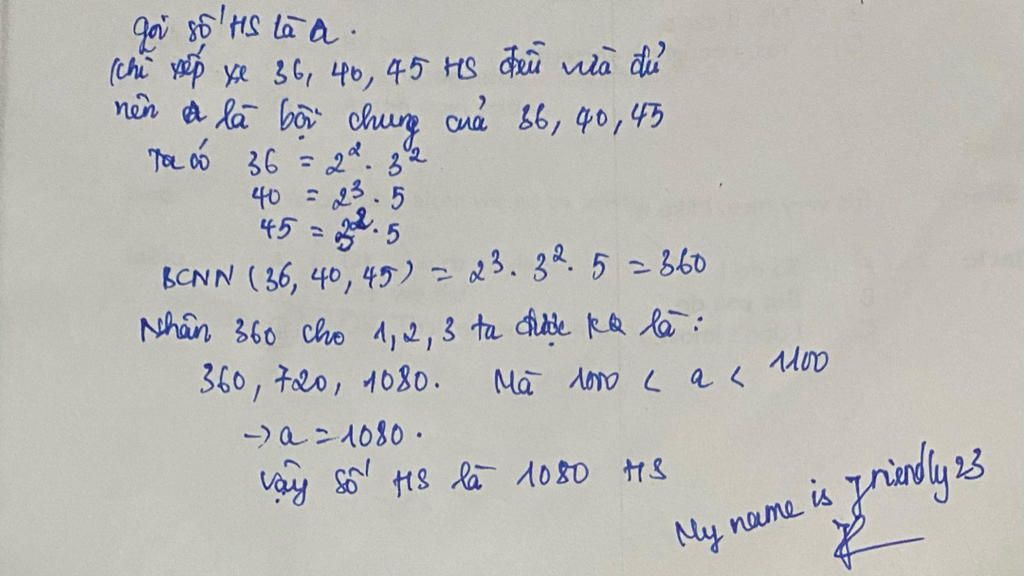 gọi số HS là a.
(chỉ xếp xe 36, 40, 45 HS đều vừa đủ
nên a là bội chung của 36, 40, 45
Ta có 36 = 2². 3²
40 = 2³. 5
45 = 3². 5
BCNN (36, 40, 45) = 2³. 3². 5 = 360
Nhân 360 cho 1, 2, 3 ta được KQ là:
360, 720, 1080. Mà 1000 < a < 1100
→ a = 1080.
Vậy số HS là 1080 HS
My name is Friendly 23